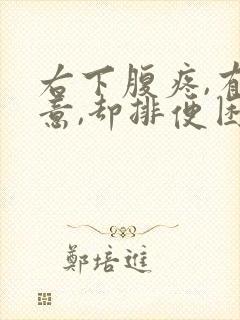 右下腹疼,有
意,却排便困
鄭培進